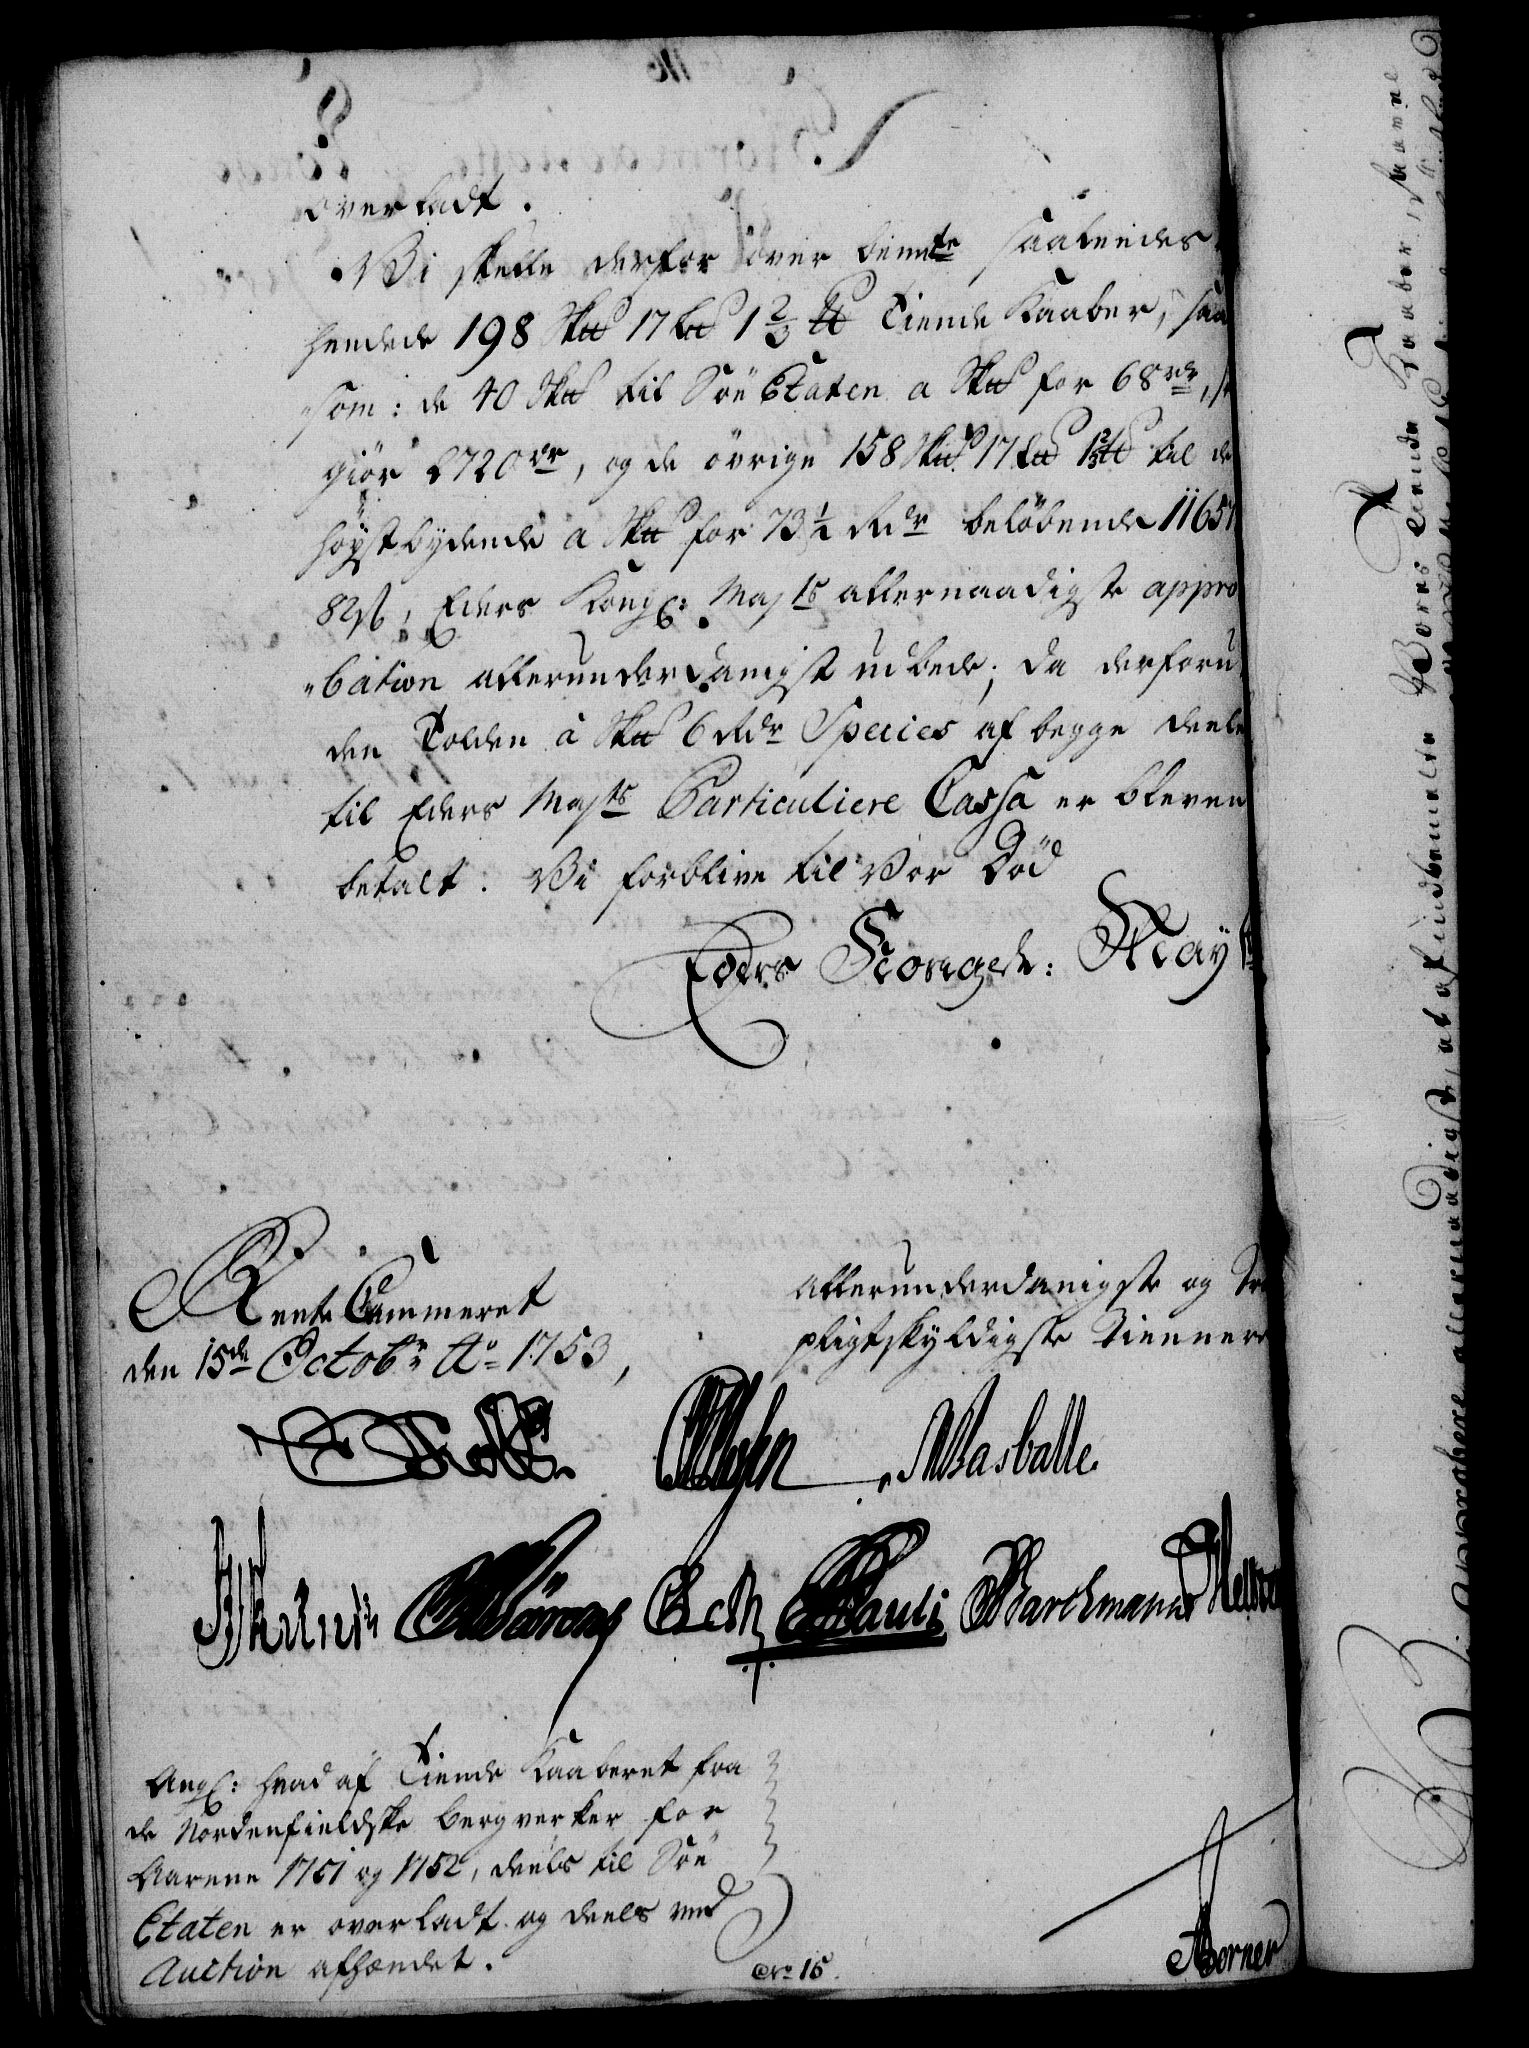 overladt.
Vi skulle derfor over bemte saaledes
hendede 198 Sk℔ 17 L℔ 1 2/3 ℔ Tiende Kaaber, saa
som: de 40 Sk℔ til Söe Etaten a Sk℔ for 68 rdr,
giör 2720 rdr, og de övrige 158 Sk℔ 17 L℔ 1 2/3 ℔ til de
höystbydende a Sk℔ for 73 1/2 Rdr beløbende 11657
82 ß, Eders Kongl: Mayts allernaadigste appro
bation allerunderdanigst udbede; da derforu
den Tolden à Sk℔ 6 Rdr Species af begge deele
til Eders Mayts Particuliere Cassa er bleven
betalt. Vi forblive til Vor Död
Eders Kongel: May
Rente Cammeret
den 15de Octobr Ao 1753,
allerunderdanigste og
pligtskyldigste Tiennere
Masballe
Pauli Barchmann
Angl: hvad af Tiende Kaaberet fra
de Nordenfieldske Bergverker for
Aarene 1751 og 1752, deels til Söe
Etaten er overladt og deels ved
Auction afhændet.
No 15.
Borner
Vores Tiende Kaaber
allernaadigst, at af indbemelte